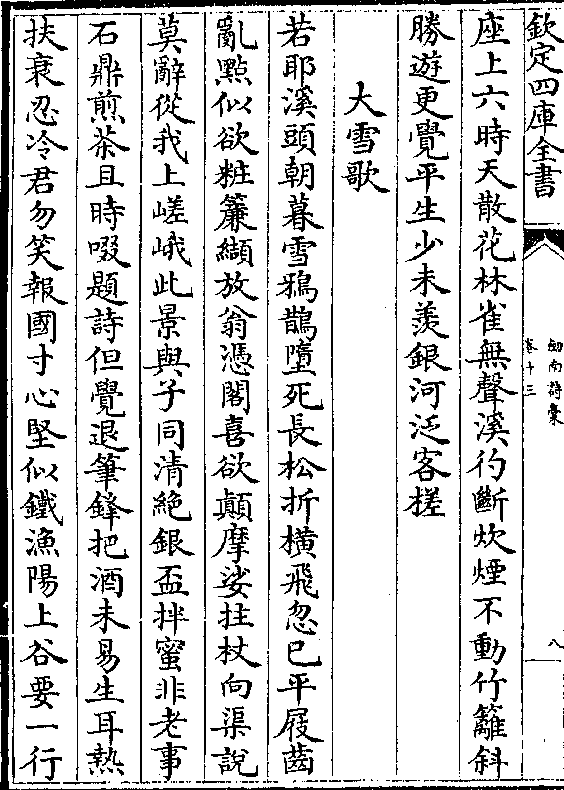 欽定四庫全書
劔南詩稾
卷十三
八
座上六時天散花林雀無聲溪彴斷炊煙不動竹籬斜
勝遊更覺平生少未羨銀河泛客槎
大雪歌
若耶溪頭朝暮雪鴉鵲墮死長松折橫飛忽已平屐齒
亂㸃似欲粧簾纈放翁憑閣喜欲顛摩娑拄杖向渠說
莫辭從我上嵯峨此景與子同清絶銀盃拌蜜非老事
石鼎煎茶且時啜題詩但覺退筆鋒把酒未易生耳熱
扶衰忍冷君勿笑報國寸心堅似鐵漁陽上谷要一行